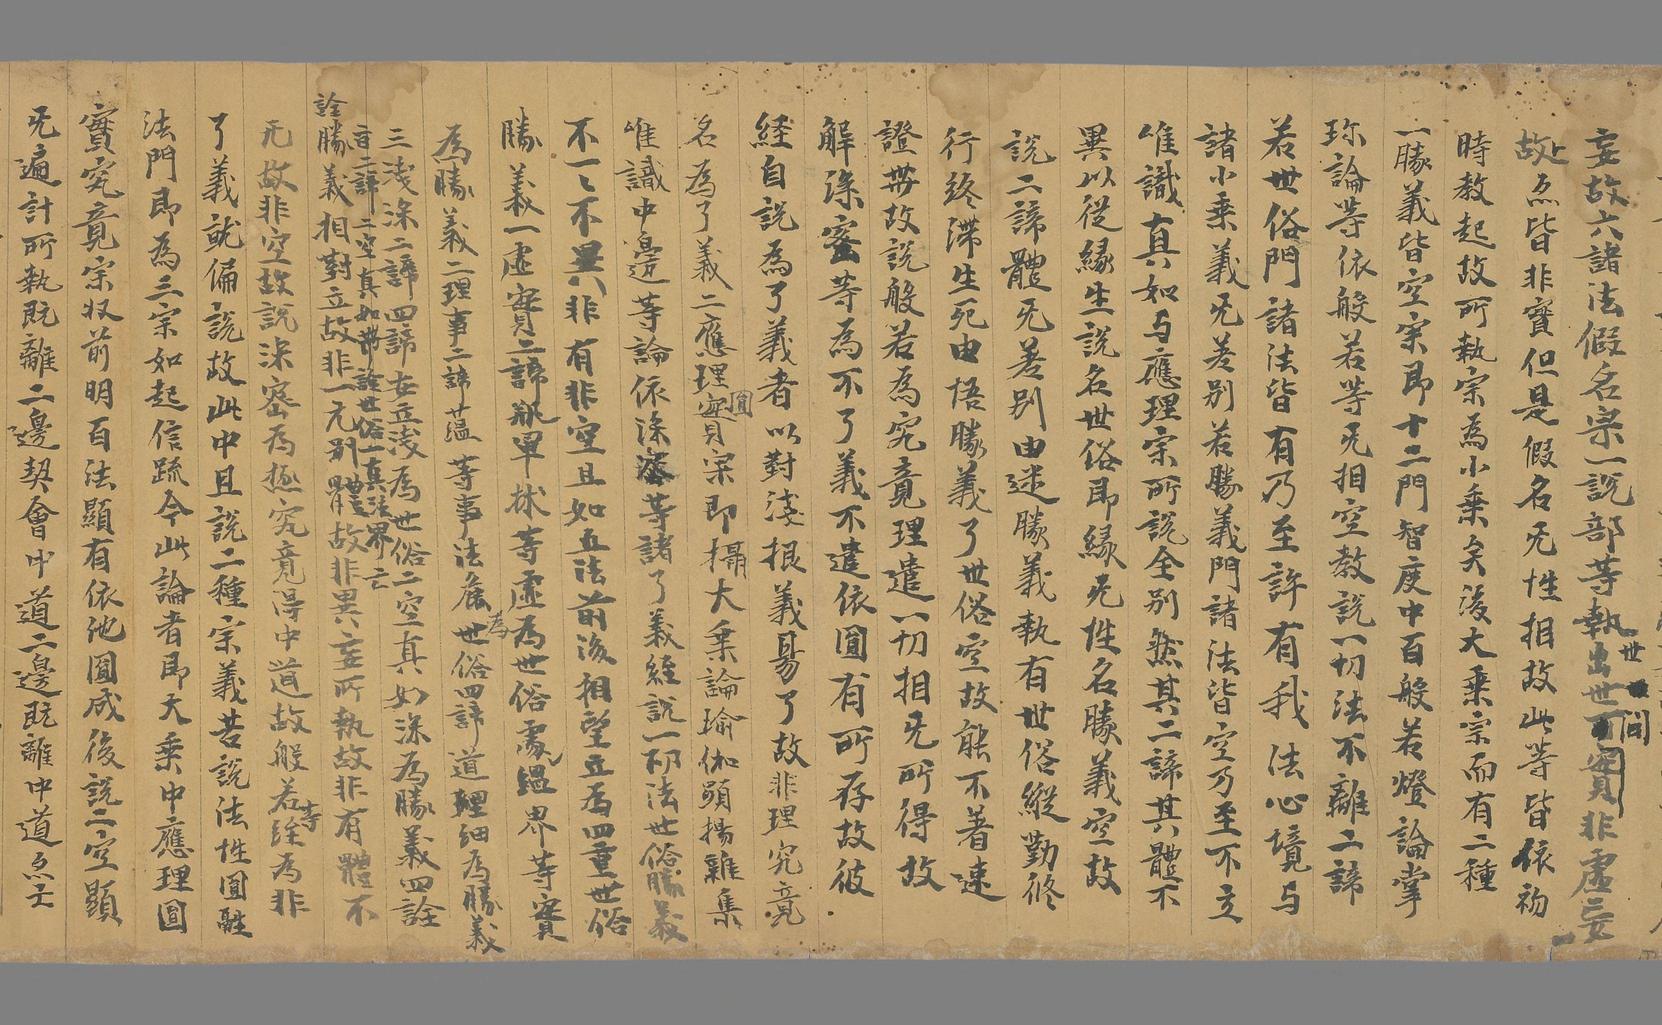 妄故六諸法假名宗一說部等執世間出世可實非虛妄
故上忽皆非實但是假名无性相故此等皆依初
時教起故所執宗為小乘矣後大乘宗而有二種
一勝義皆空宗即十二門智度中百般若燈論掌
珎論等依般若等无相空教說一切法不離二諦
若世俗門諸法皆有乃至許有我法心境与
諸小乘義无差別若勝義門諸法皆空乃至不立
唯識真如与應理宗所說全別然其二諦其體不
異以從緣生說名世俗即緣无性名勝義空故
說二諦體无差別由迷勝義執有世俗縱勤修
行終滯生死由悟勝義了世俗空故能不著速
證無故說般若為究竟理遣一切相无所得故
解深蜜等為不了義不遣依圓有所存故彼
經自說為了義者以對淺根義易了故非理究竟
名為了義二應理圓實宗即攝大乘論瑜伽顯揚雜集
唯識中邊等論依深密等諸了義經說一切法世俗勝義
不一〻不異非有非空且如五法前後相望立為四重世俗
勝義一虛實二諦瓶軍林等虛為世俗處蘊界等實
為勝義二理事二諦蘊等事法麁為世俗四諦道理細為勝義
三淺深二諦四諦安立淺為世俗二空真如深為勝義四詮
旨二諦二空真如帶詮世俗一真法界亡
詮勝義相對立故非一无別體故非異妄所執故非有體不
无故非空故說深密為極究竟得中道故般若等詮為非
了義就偏說故此中且說二種宗義若說法性圓融
法門即為三宗如起信疏今此論者即大乘中應理圓
實究竟宗収前明百法顯有依池圓成後說二空顯
无遍計所執既離二邊契會中道二邊既離中道忽亡